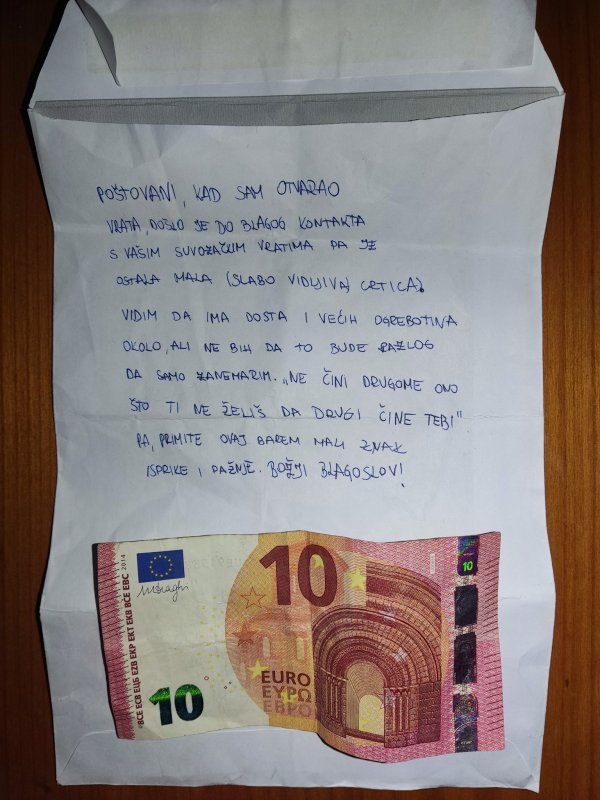 POŠTOVANI, KAD SAM OTVARAO
VRATA, DOŠLO JE DO BLAGOG KONTAKTA
S VAŠIM SUVOZAČKIM VRATIMA PA JE
OSTALA MALA (SLABO VIDLJIVA) CRTICA.
VIDIM DA IMA DOSTA I VEĆIH OGREBOTINA
OKOLO, ALI NE BIH DA TO BUDE RAZLOG
DA SAMO ZANEMARIM. „NE ČINI DRUGOME ONO
ŠTO TI NE ŽELIŠ DA DRUGI ČINE TEBI"
PA, PRIMITE OVAJ BAREM MALI ZNAK
ISPRIKE I PAŽNJE. BOŽJI BLAGOSLOV!
10
10
EURO
ΕΥΡΩ
ЕВРО
10
BCE ECB ЕЦБ EZB EKP EKT EKB BĊE EBC 2014